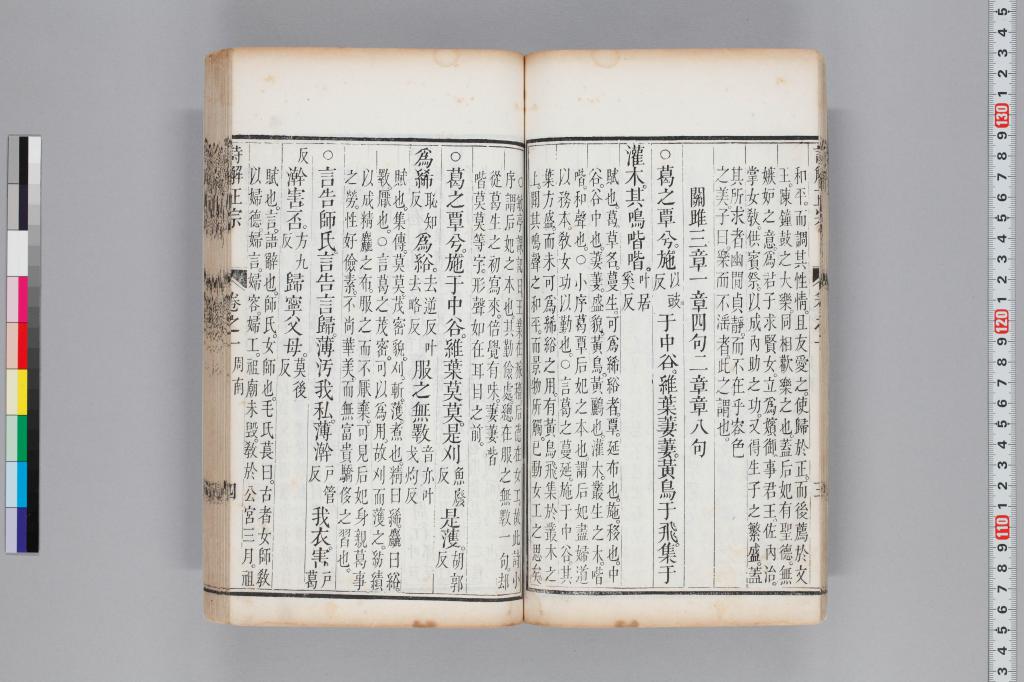 和平而調其性情且友愛之使歸於正而後薦於文
王陳鐘鼓之大樂同相歡樂之也蓋后妃有聖德無
嫉妒之意為君子求賢女立為嬪御事君王佐內治
掌女敎供賓祭以成內助之功又得生子之繁盛蓋
其所求者幽閒貞靜而不在乎容色
之美子曰樂而不淫者此之謂也
關雎三章一章四句二章章八句
○葛之覃兮施以豉反于中谷維葉萋萋黃鳥于飛集于
灌木其鳴喈喈叶居奚反
賦也葛草名蔓生可為絺綌者覃延布也施移也中
谷谷中也萋萋盛貌黃鳥黃鸝也灌木叢生之木喈
喈和聲也○小序葛覃后妃之本也謂后妃盡婦道
以務本敎女功以勤也○言葛之蔓延施于中谷其
葉方盛而未可為絺綌之用有黃鳥飛集於叢木之
上聞其鳴聲之和平而景物所觸已動女工之思矣
序謂后妃之本也其勤儉處總在服之無斁一句却
從葛生之初寫來倍覺有味萋萋喈
喈莫莫等字形聲如在耳目之前
○葛之覃兮施于中谷維葉莫莫是刈魚廢反是濩胡郭反
為絺恥知反為綌去逆反叶去略反服之無斁音亦叶弋灼反
賦也集傳莫莫茂密貌刈斬濩煮也精曰絺麤曰綌
斁厭也○言葛之茂密可以為用故刈而濩之紡績
以成精麤之布服之而不厭棄可見后妃身親葛事
之勞性好儉素不尚華美而無富貴驕侈之習也
○言告師氏言告言歸薄汚我私薄澣戶管反我衣害戶葛
反澣害否方九反歸寧父母莫後反
賦也言語辭也師氏女師也毛氏萇曰古者女師敎
以婦德婦言婦容婦工祖廟未毀敎於公宮三月祖
詩解正宗 卷之一 周南 四